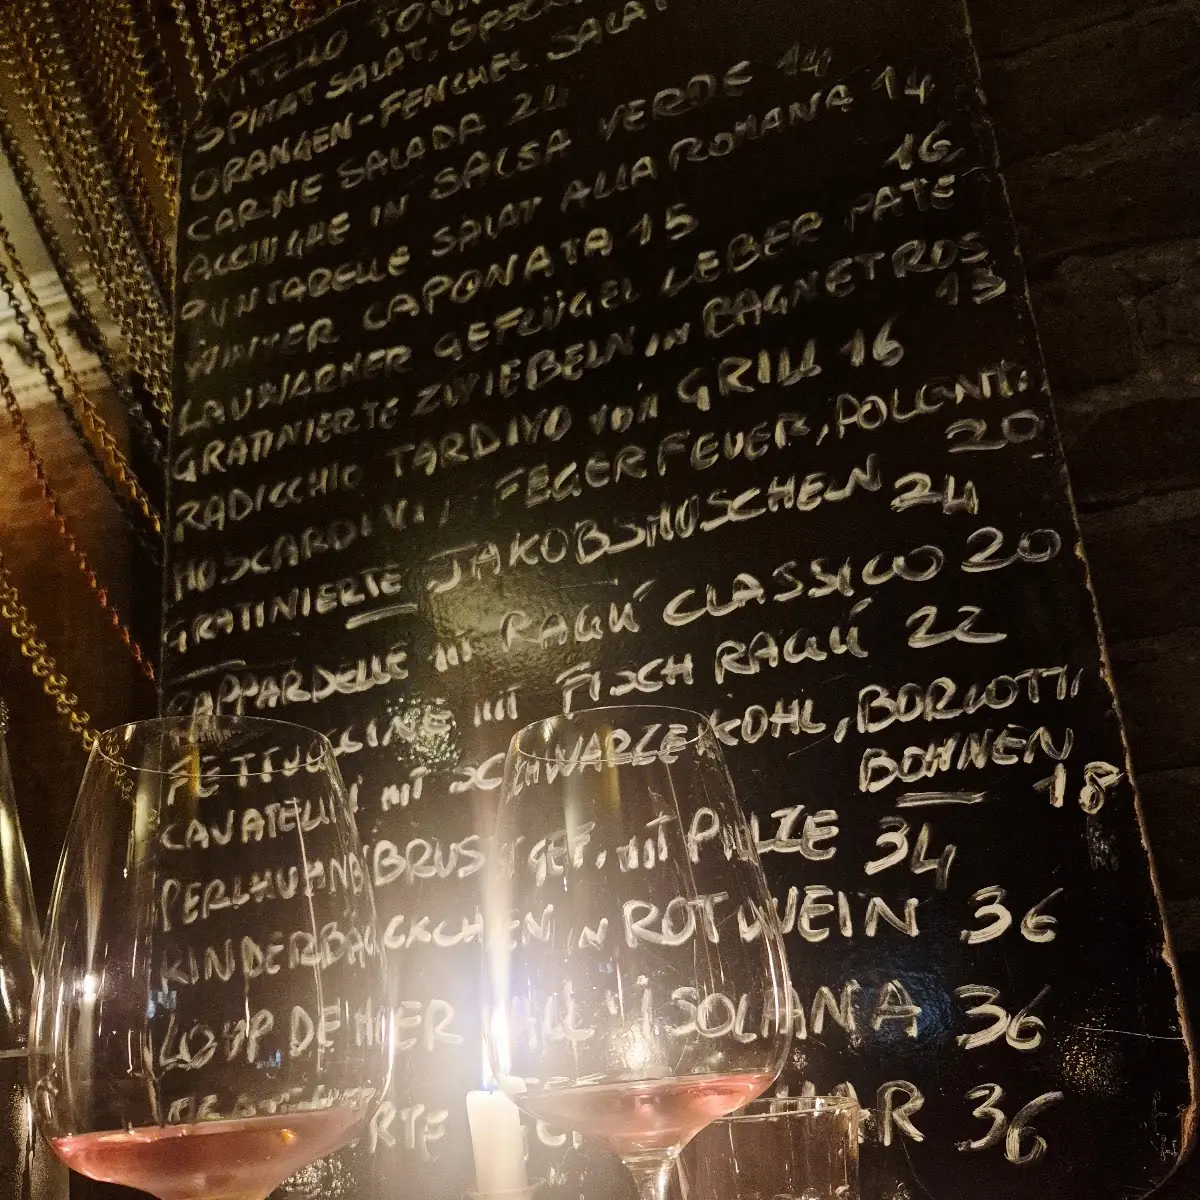 VITELLO TONN
SPINAT SALAT, SPECK
ORANGEN-FENCHEL SALAT
CARNE SALADA 24
ACCIUGHE IN SALSA VERDE 14
PUNTARELLE SALAT ALLA ROMANA 14
WINTER CAPONATA 15 16
LAUWARMER GEFLÜGEL LEBER PATE
GRATINIERTE ZWIEBELN IN BAGNETROS
13
RADICCHIO TARDIVO VOM GRILL 16
MOSCARDINI, FEGERFEUER, POLENTA
20
GRATINIERTE JAKOBSMUSCHELN 24
PAPPARDELLE MIT RAGÚ CLASSICO 20
FETTUCCINE MIT FISCH RAGÚ 22
CAVATELLI MIT SCHWARZEKOHL, BORLOTTI
BOHNEN
18
PERLHUHNBRUST GEF. MIT PILZE 34
RINDERBÄCKCHEN IN ROTWEIN 36
LOUP DE MER ALL'ISOLANA 36
RTE AR 36